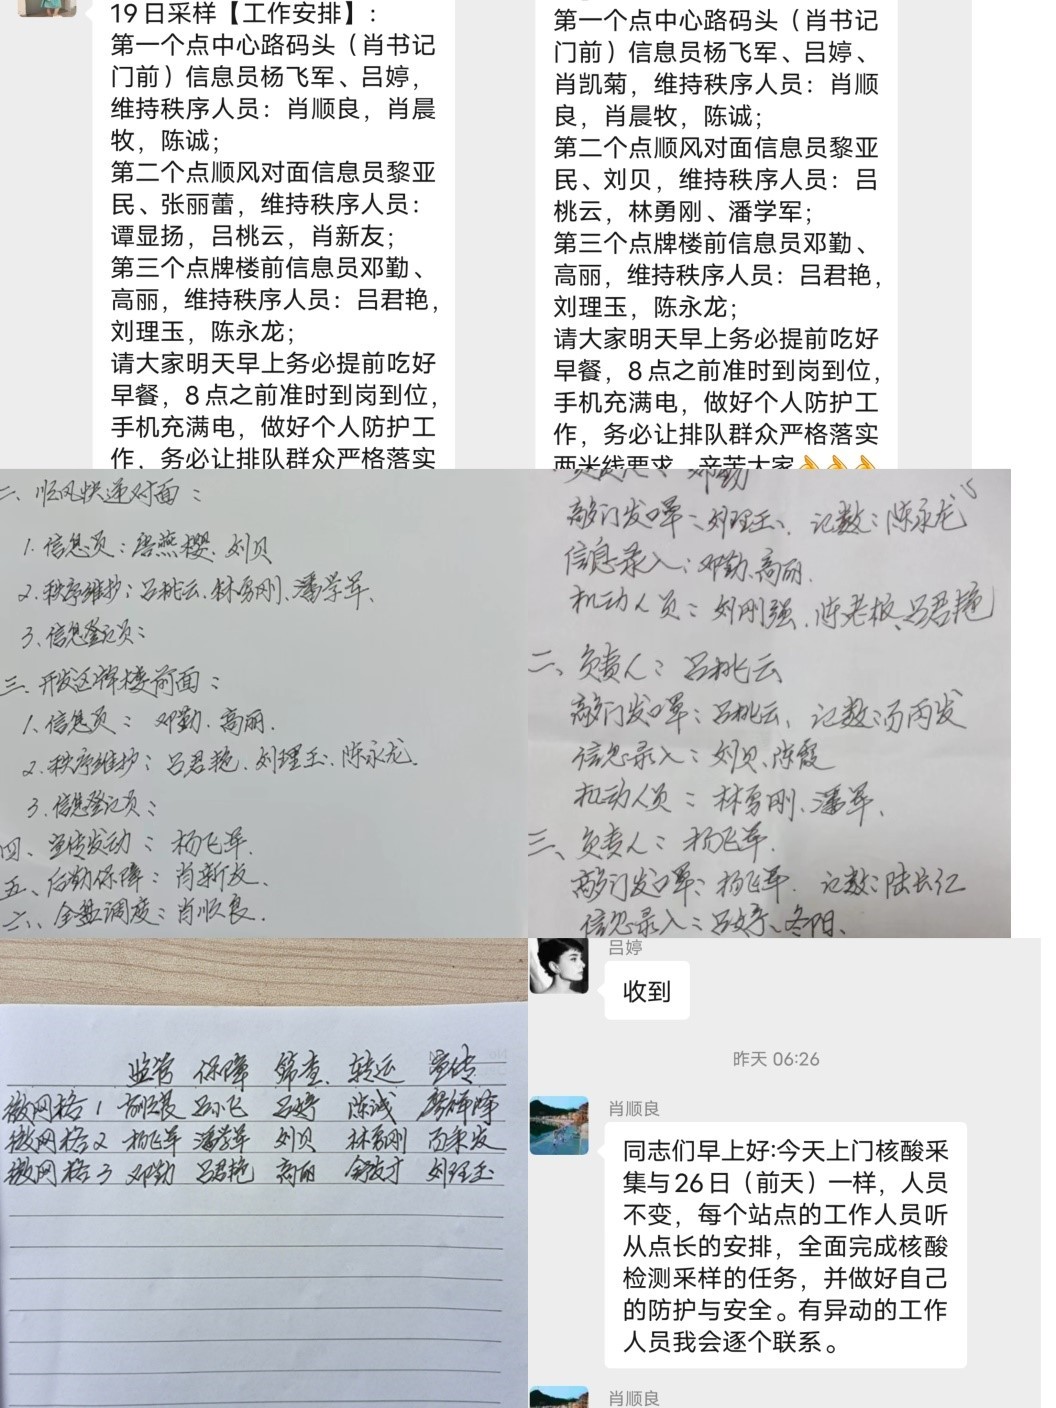 19日采样【工作安排】:
第一个点中心路码头（肖书记
门前）信息员杨飞军、吕婷,
维持秩序人员：肖顺良，肖晨
牧，陈诚;
第二个点顺风对面信息员黎亚
民、张丽蕾，维持秩序人员:
谭显扬，吕桃云，肖新友;
第三个点牌楼前信息员邓勤、
高丽，维持秩序人员：吕君艳,
刘理玉，陈永龙;
请大家明天早上务必提前吃好
早餐，8点之前准时到岗到位,
手机充满电，做好个人防护工
作，务必让排队群众严格落实
第一个点中心路码头（肖书记
门前）信息员杨飞军、吕婷、
肖凯菊，维持秩序人员：肖顺
良，肖晨牧，陈诚;
第二个点顺风对面信息员黎亚
民、刘贝，维持秩序人员：吕
桃云，林勇刚、潘学军;
第三个点牌楼前信息员邓勤、
高丽，维持秩序人员：吕君艳,
刘理玉，陈永龙;
请大家明天早上务必提前吃好
早餐，8点之前准时到岗到位,
手机充满电，做好个人防护工
作，务必让排队群众严格落实
两米线要求，辛苦大家
二、顺风快递对面：
1.信息员：唐燕樱、刘贝
2.秩序维护：吕桃云、林勇刚、潘学军、
3.信息登记员：
三、开发区牌楼前面：
1.信息员：邓勤、高丽.
2.秩序维护：吕君艳、刘理玉、陈永龙.
3.信息登记员：
四、宣传发动：杨飞军.
五、后勤保障：肖新友、
六、全盘调度：肖顺良.
邓勤
敲门发口罩：刘理玉、记数：陈永龙
信息录入：邓勤、高丽.
机动人员：刘刚强、陈老板、吕君艳
二、负责人：吕桃云
敲门发口罩：吕桃云、记数：汤丙发
信息录入：刘贝、陈霞
机动人员：林勇刚、潘军、
三、负责人：杨飞军.
敲门发口罩：杨飞军. 记数：陆长仁
信息录入：吕婷、冬阳、
监管 保障 筛查 转运 宣传
微网格1 吕小飞 吕婷 陈诚
微网格2 杨飞军 潘学军 刘贝 林勇刚
微网格3 邓勤 吕君艳 高丽 刘理玉
吕婷
收到
昨天 06:26
肖顺良
同志们早上好:今天上门核酸采
集与26日（前天）一样，人员
不变，每个站点的工作人员听
从点长的安排，全面完成核酸
检测采样的任务，并做好自己
的防护与安全。有异动的工作
人员我会逐个联系。
肖顺良